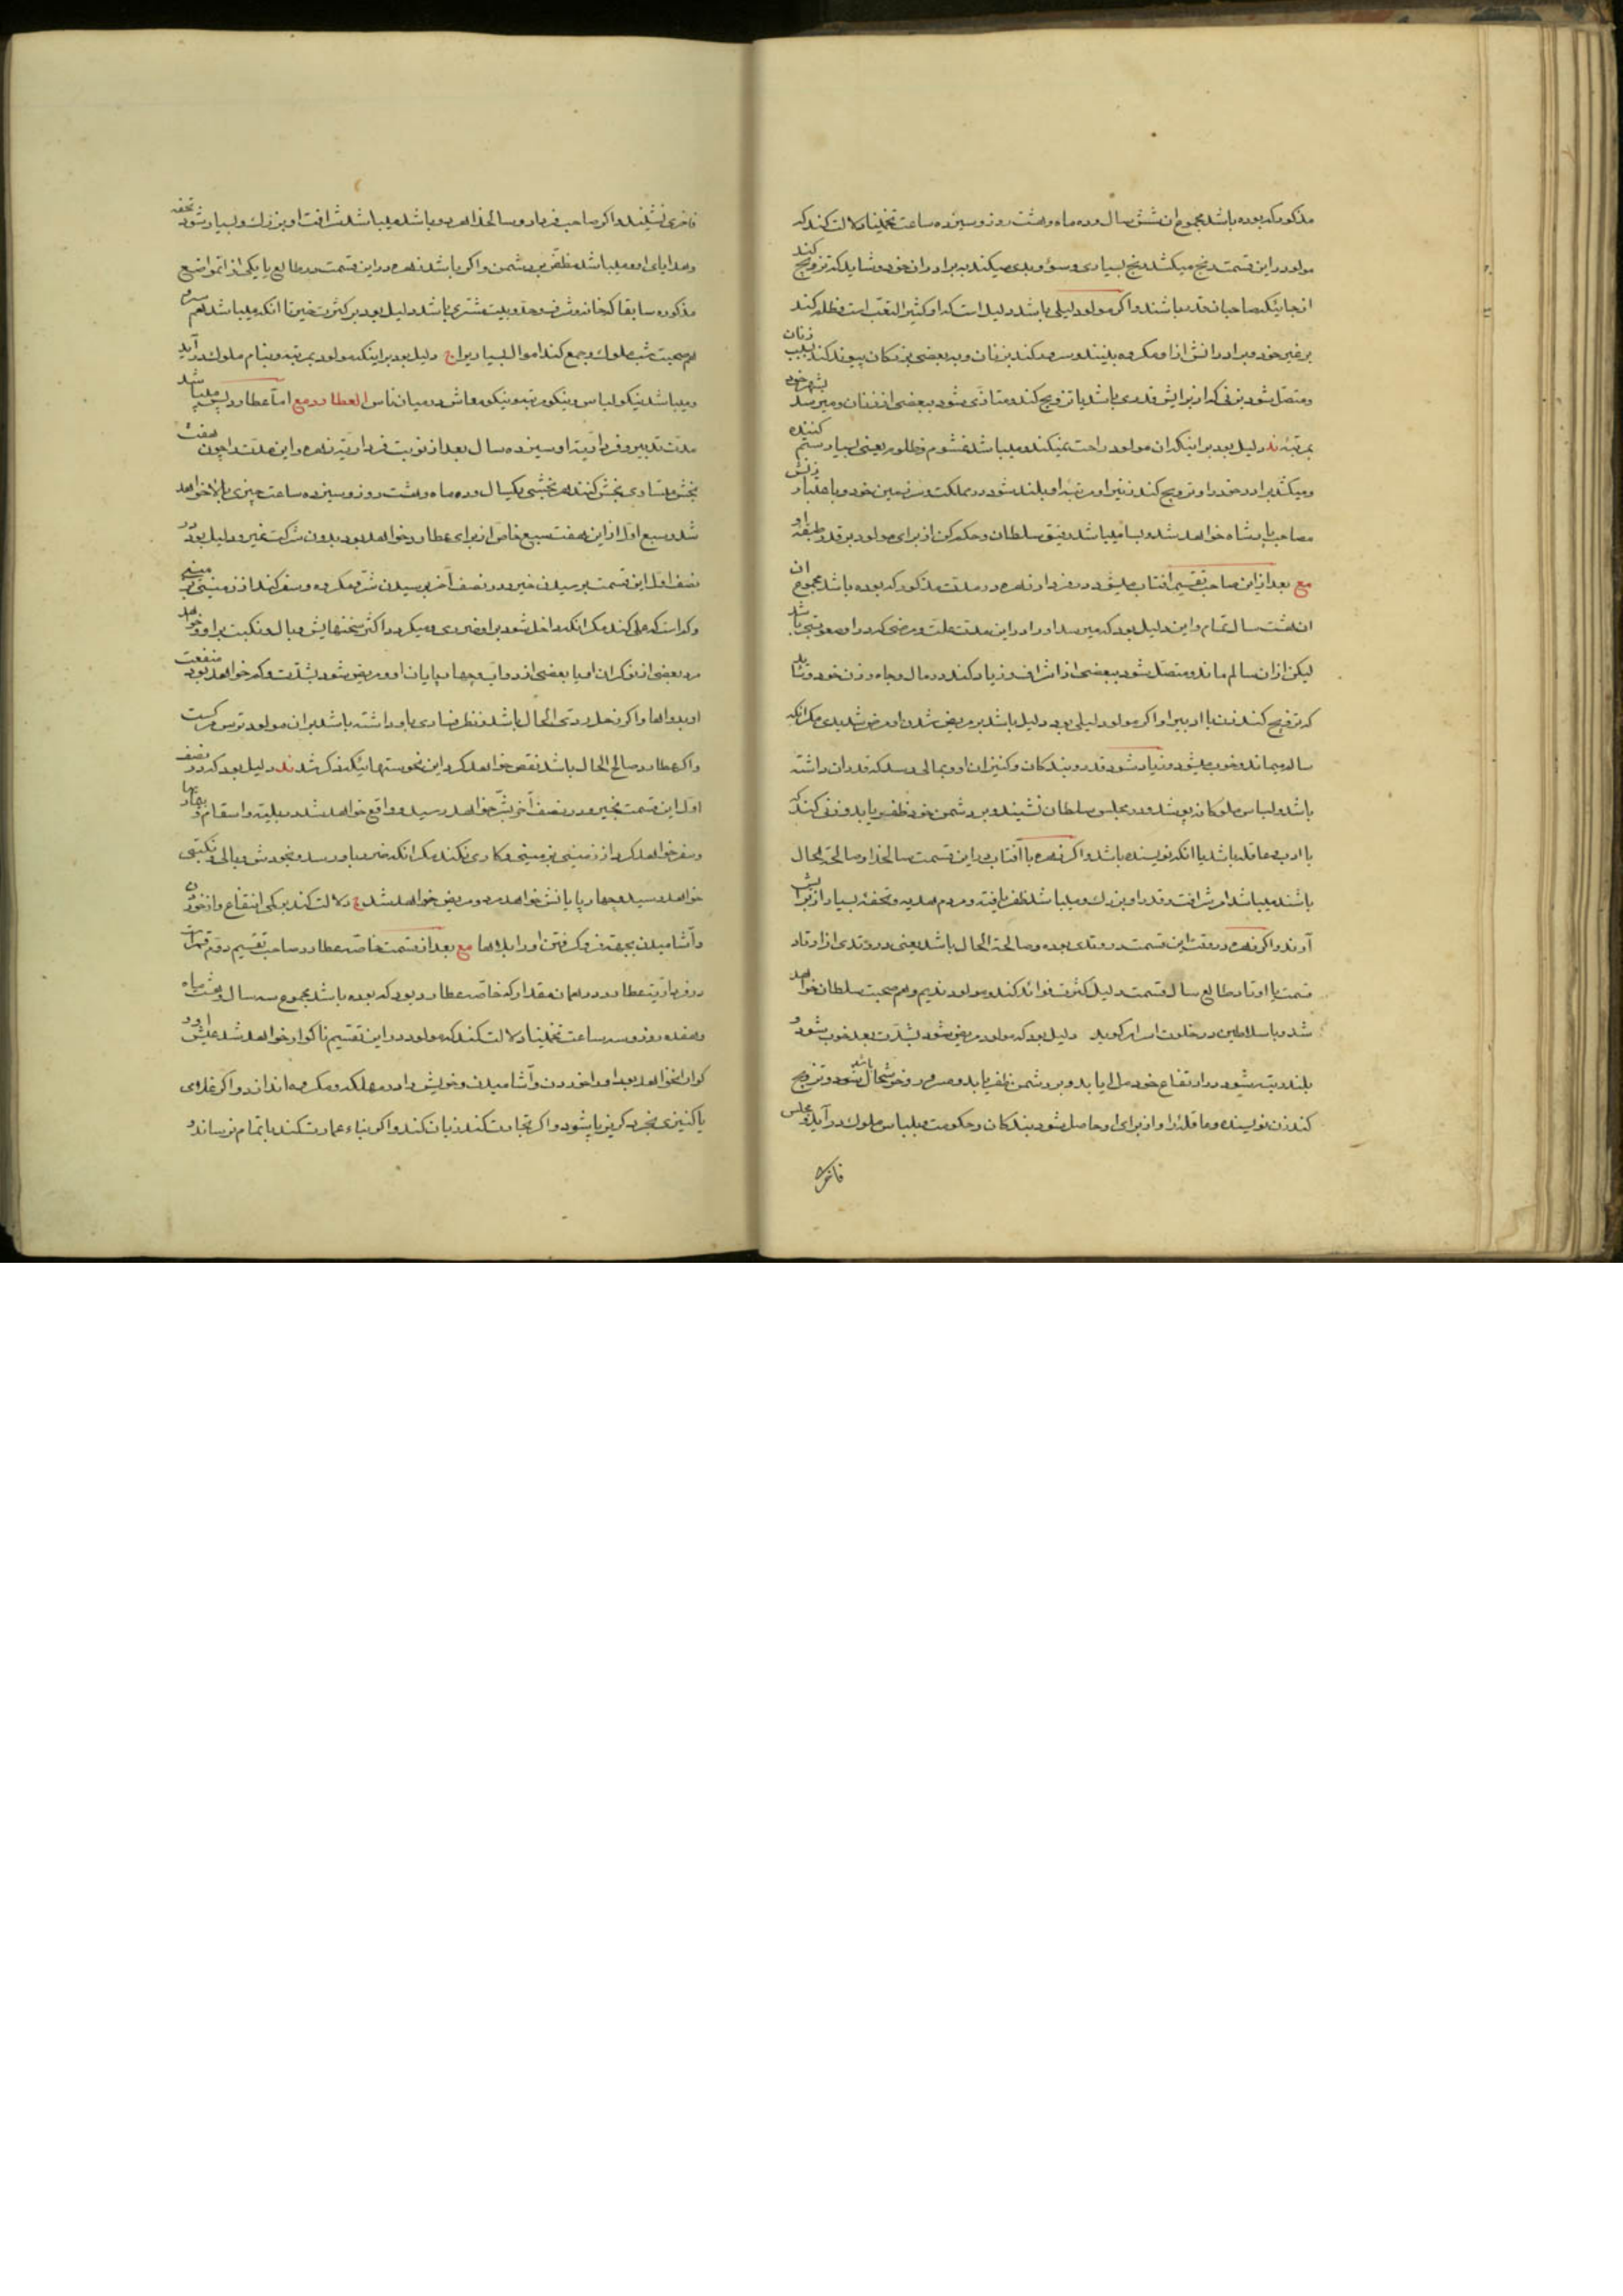 مذکور که بوده باشد مجموع ان شش سال و ده ماه و هشت روز و سیزده ساعت تخمینا دلالت کند که
مولود در این قسمت رنج میکشد رنج بسیاری و سوء و بدی میکند به برادران خود و شاید که تزویج کند
از جائیکه صاحبان قدر باشند و اگر مولود لیلی باشد دلیل است که او کثیر التعب است و ظلم کند
بر غیر خود و برادرانش از او مکروه بینند و سرور کند بزنان و به بعضی بزرکان پیوند کند بسبب زنان
و متصل شود بزنی که از برایش قدری باشد یا تزویج کند و متاذی شود ببعضی از زنان و میرسد بشهر خود
بمرتبه ند دلیل بود بر اینکه ان مولود راحت نمیکند و میباشد غشوم و ظلوم یعنی بسیار ستم کننده
و میکشد برادر خود را و تزویج کند زنیرا و مرتبه او بلند شود در مملکت و سرزمین خود و با عتبار زنش
مصاحب پادشاه خواهد شد و بسا میباشد رفیق سلطان و حکم کن از برای مولود بر قدر طبقه او
مع بعد از این صاحب تقسیم افتاب میشود در فردار زهره در مدت مذکور که بوده باشد مجموع ان
ان هشت سال تمام و این دلیل بود که میرسد او را در این مدت علت و مرضی که در او صعوبتی باشد
لیکن از ان سالم ماند و متصل شود ببعضی از اشراف و زیاد کند در مال و جاه و زن خود و شاید
که تزویج کند زن با ادبیرا و اگر مولود لیلی بود دلیل باشد بر مریض شدن او مرض شدیدی مکر انکه
سالم میماند و خوب میشود و زیاد شود قدر و بندکان و کنیزان او و بمالی رسد که قدر ان داشته
باشد و لباس ملوکانه پوشد و در مجلس سلطان نشیند و بر دشمن خود ظفر یابد و زنی کند که
با ادب و عاقله باشد یا انکه نویسنده باشد و اگر زهره با آفتاب در این قسمت صالحذا و صالحة الحال
باشند میباشد امر شرافت و قدر او بزرك و میباشد ظفر یافته و مردم هدیه و تحفه بسیار از برایش
آورند و اگر زهره در وقت این قسمت در وتدی بوده و صالحة الحال باشد یعنی در وتدی از اوتاد
قسمت یا اوتاد طالع سال قسمت دلیل کثرت فوائد کند و مولود ندیم و هم صحبت سلطان خواهد
شد و با سلاطین در خلوت اسرار کوید دلیل بود که مولود مریض شود بشدت بعد خوب شود و
بلند رتبه شود در ارتفاع خود مال ا یابد و بر دشمن ظفر یابد و مسرور و خوشحال شود باشد و تزویج
کند زن نویسنده و عاقله را و از برای او حاصل شود بندکان و حکومت و بلباس ملوك درآید و مجلس
فاخری
فاخری نشیند و اگر صاحب فردار و سالخذاه او باشد میباشد شرافت او بزرك و بسیار شود تحفه
و هدایای او و میباشد مظفر بر دشمن و اگر باشد زهره در این قسمت در طالع یا یکی از مواضع
مذکوره سابقا که خانه و شرف و حد و بیت مشتری باشد دلیل بود بر کثرت خیر تا انکه میباشد هم سر و
هم صحبت شب ملوك و جمع کند اموال بسیار یرا ج دلیل بود بر اینکه مولود بمرتبه و بنام ملوك در آید
و میباشد نیکو لباس و نیکو مرتبه و نیکو معاش در میان ناس العطارد مع اما عطارد پس میباشد
مدت تدبیر و فرداریة او سیزده سال بعد از نوبت فرداریة زهره و این مدت را چون هفت
بخش متساوی بخش کنند هر بخشی یکسال و ده ماه و هشت روز و سیزده ساعت چیزی بالا خواهد
شد و سبع اول از این هفت سبع خاص از برای عطارد خواهد بود بدون شرکت غیر و دلیل بود در
نصف اول این قسمت برسیدن خیر و در نصف آخر برسیدن شر و مکروه و سفر کند از زمینی بزمینی
و کم است که عملی کند مکر انکه داخل شود بر او ضرری و میکردد اکثر سخنهایش وبال و نکبت بر او و خواهد
مرد بعضی از نوکران او یا بعضی از دواب و چهارپایان او و مریض شود بشدت و کم خواهد بود منفعت
او بدواها و اگر زحل ردی الحال باشد و نظر فسادی باو داشته باشد بران مولود ترس مرکست
و اگر عطارد صالح الحال باشد نقص خواهد کرد این نحوستهائیکه ذکر شد ند دلیل بود که در نصف
اول این قسمت بخیر و در نصف آخر بشر خواهد رسید و واقع خواهد شد در بلیه و اسقام و بیماریها
و سفر خواهد کرد از زمینی بزمینی و کاری نکند مکر انکه ضرر باو رسد و بخودش وبالی و نکبتی
خواهد رسید و چهارپایانش خواهد مرد و مریض خواهد شد ج دلالت کند بر کمی انتفاع او از خوردن
و آشامیدن بجهة فرو کرفتن او را بلاها مع بعد از قسمت خاصه عطارد صاحب تقسیم دوم قمر است
در فرداریة عطارد در همان مقدار که خاصه عطارد بود که بوده باشد مجموع سه سال و هشت ماه
و هفده روز و سه ساعت تخمینا دلالت کند که مولود در این تقسیم ناکوار خواهد شد عیش او و
کوارا نخواهد بود او را خوردن و آشامیدن و خویش را در مهلکه و مکروه اندازد و اگر غلامی
یا کنیزی بخرد کریز پا شود و اگر تجارت کند زیان کند و اگر بناء عمارت کند باتمام نرساند و